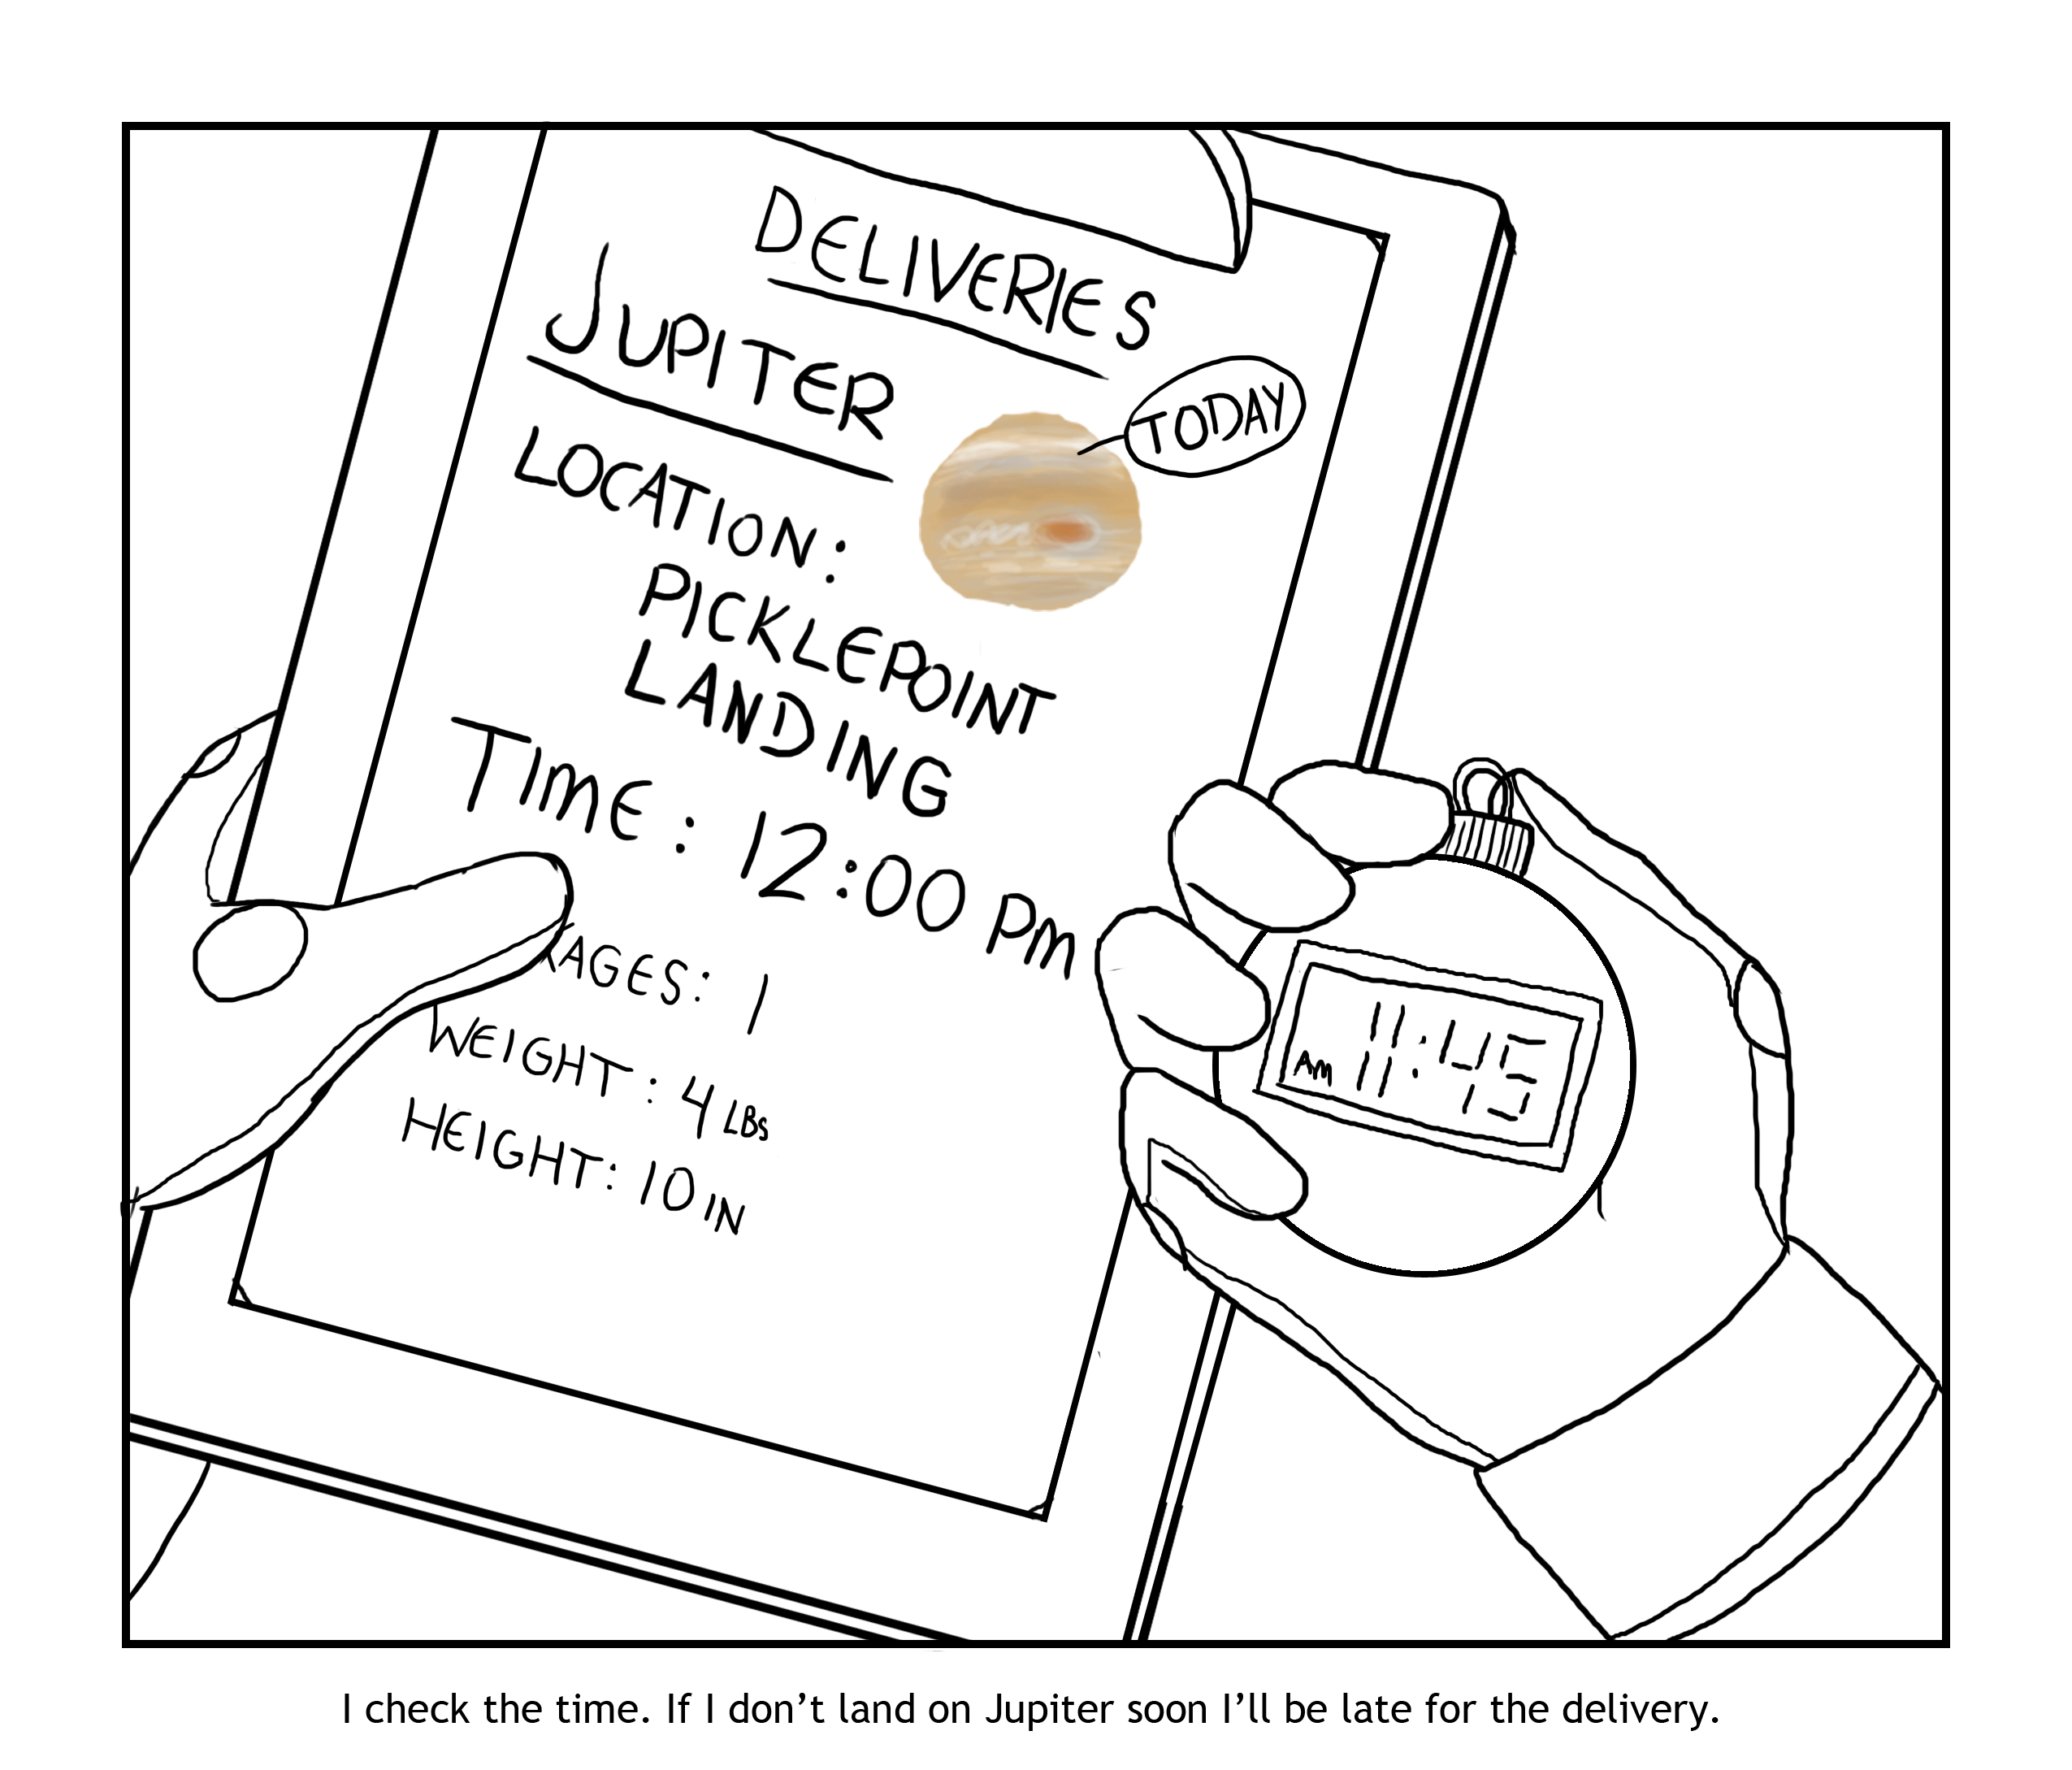 DELIVERIES
JUPITER
TODAY
LOCATION:
PICKLEPOINT
LANDING
TIME: 12:00 PM
KAGES: 1
WEIGHT: 4 LBS
HEIGHT: 10 IN
AM 11:45
I check the time. If I don’t land on Jupiter soon I’ll be late for the delivery.